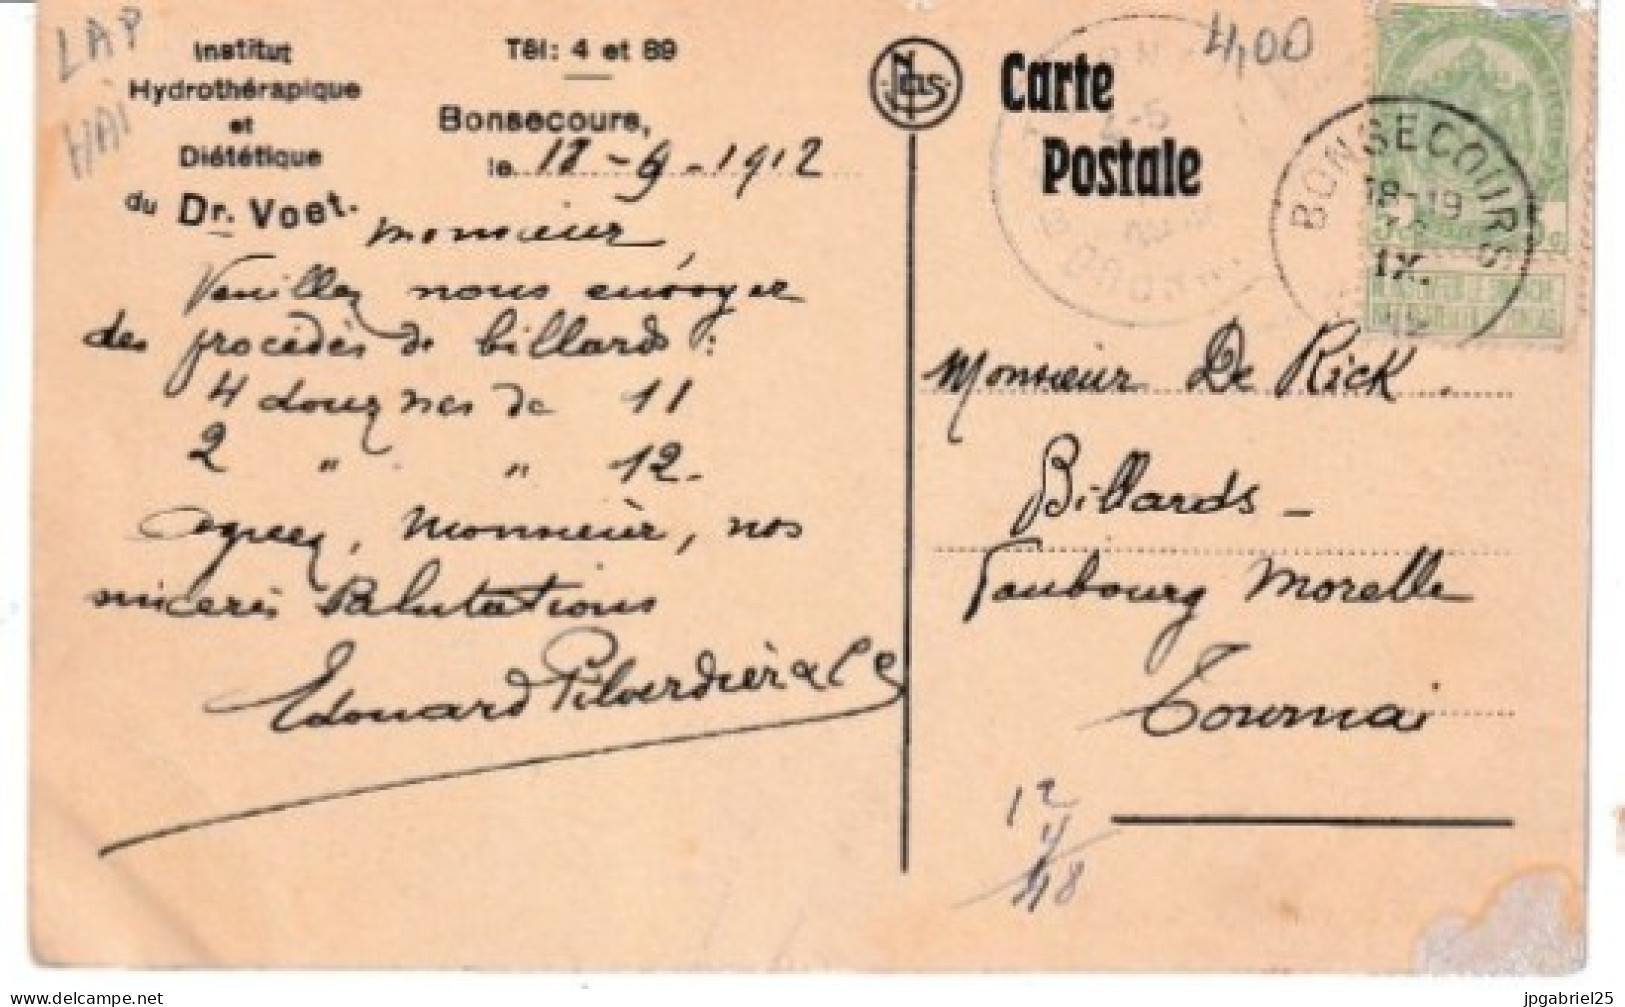 LAP
HAI
Institut
Hydrothérapique
et
Diététique
du Dr. Voet.
Tél: 4 et 89
Bonsecours,
le 18-9-1912
Monsieur
Veuillez nous envoyer
des procédés de billards :
4 douznes de 11
2 " " 12-
Agréez, Monsieur, nos
sincères salutations
Edouard
Nels
Carte
Postale
4,00
BONSECOURS
18-19
IX
Monsieur De Rick.
Billards -
Faubourg Morelle
Tournai
12
4
48
delcampe.net
jpgabriel25